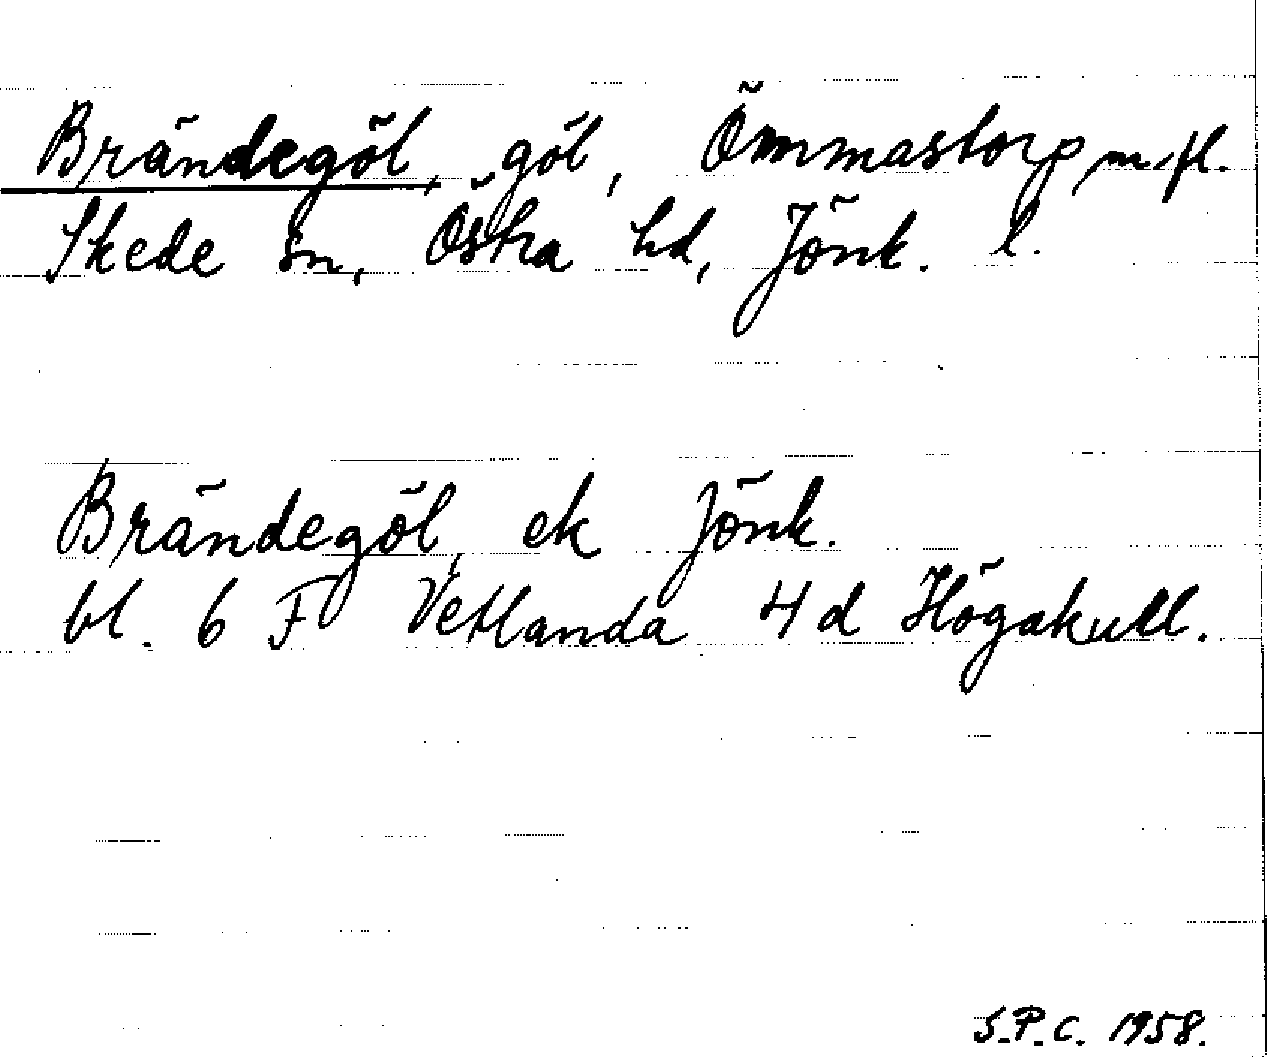 Brändegöl, göl, Ömmastorp m. fl.
Skede sn, Östra hd, Jönk. l.
Brändegöl, ek Jönk.
bl. 6 F Vetlanda 4 d Högakull.
S.P.C. 1958.